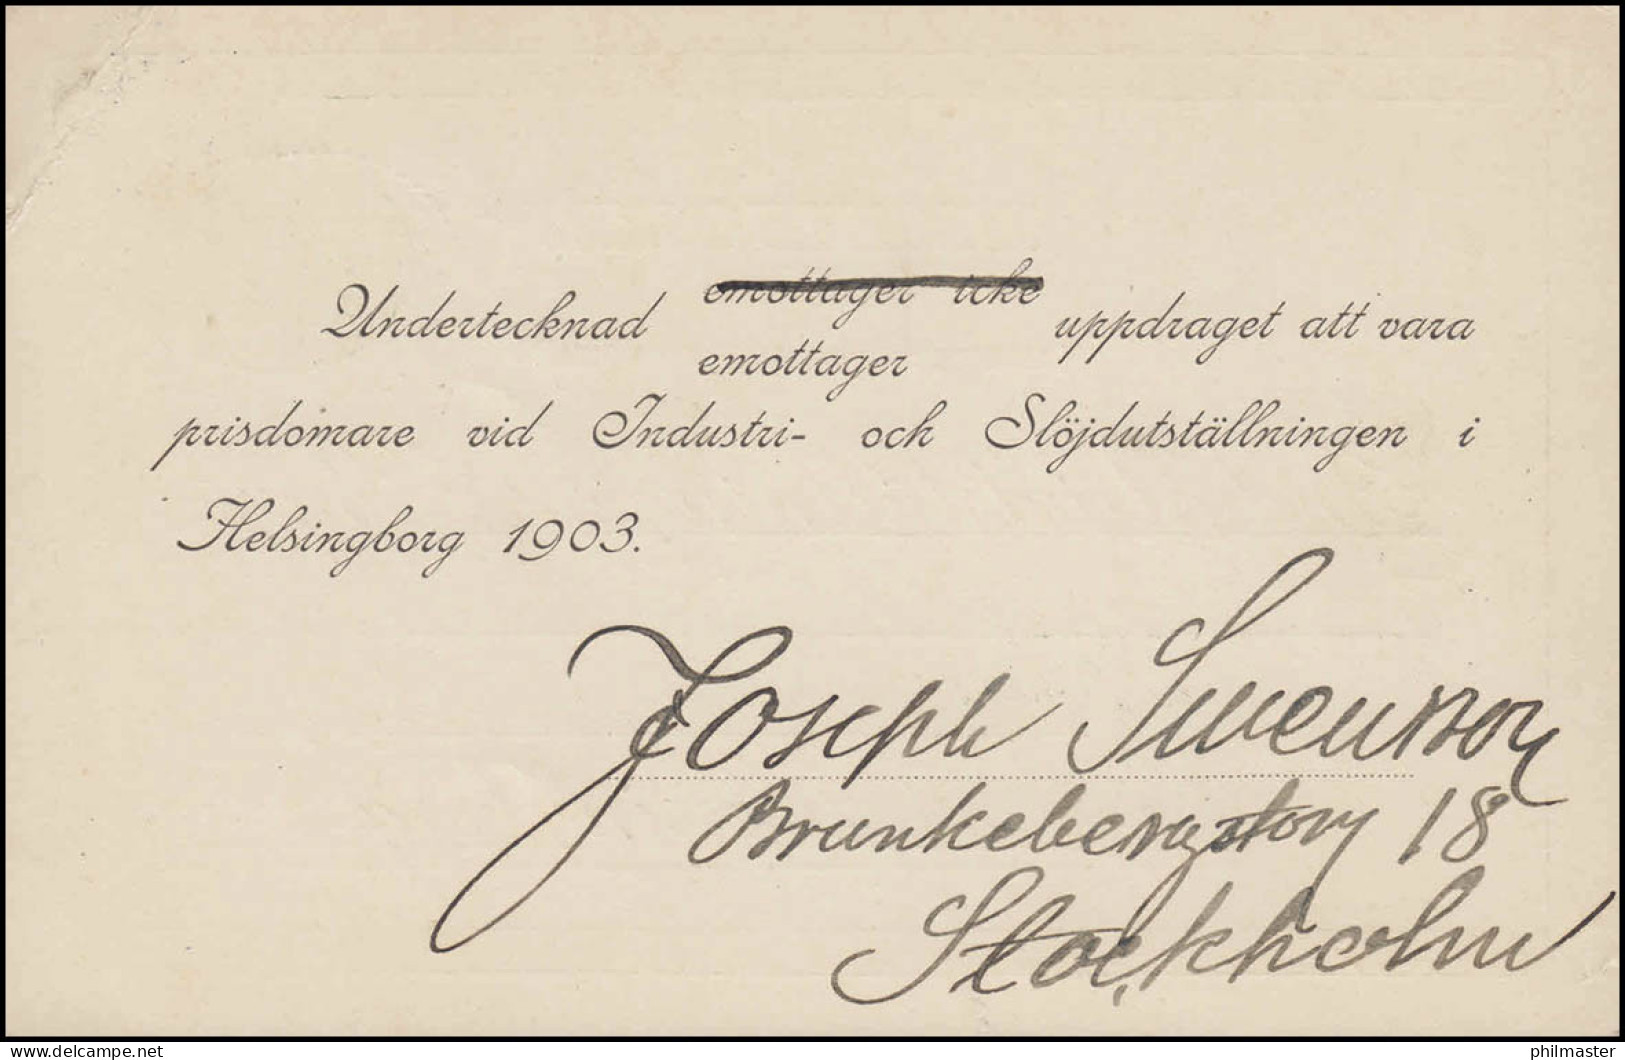 emottager icke
Undertecknad uppdraget att vara
emottager
prisdomare vid Industri- och Slöjdutställningen i
Helsingborg 1903.
Joseph Swensson
Brunkebergstorg 18
Stockholm
www.delcampe.net
philmaster